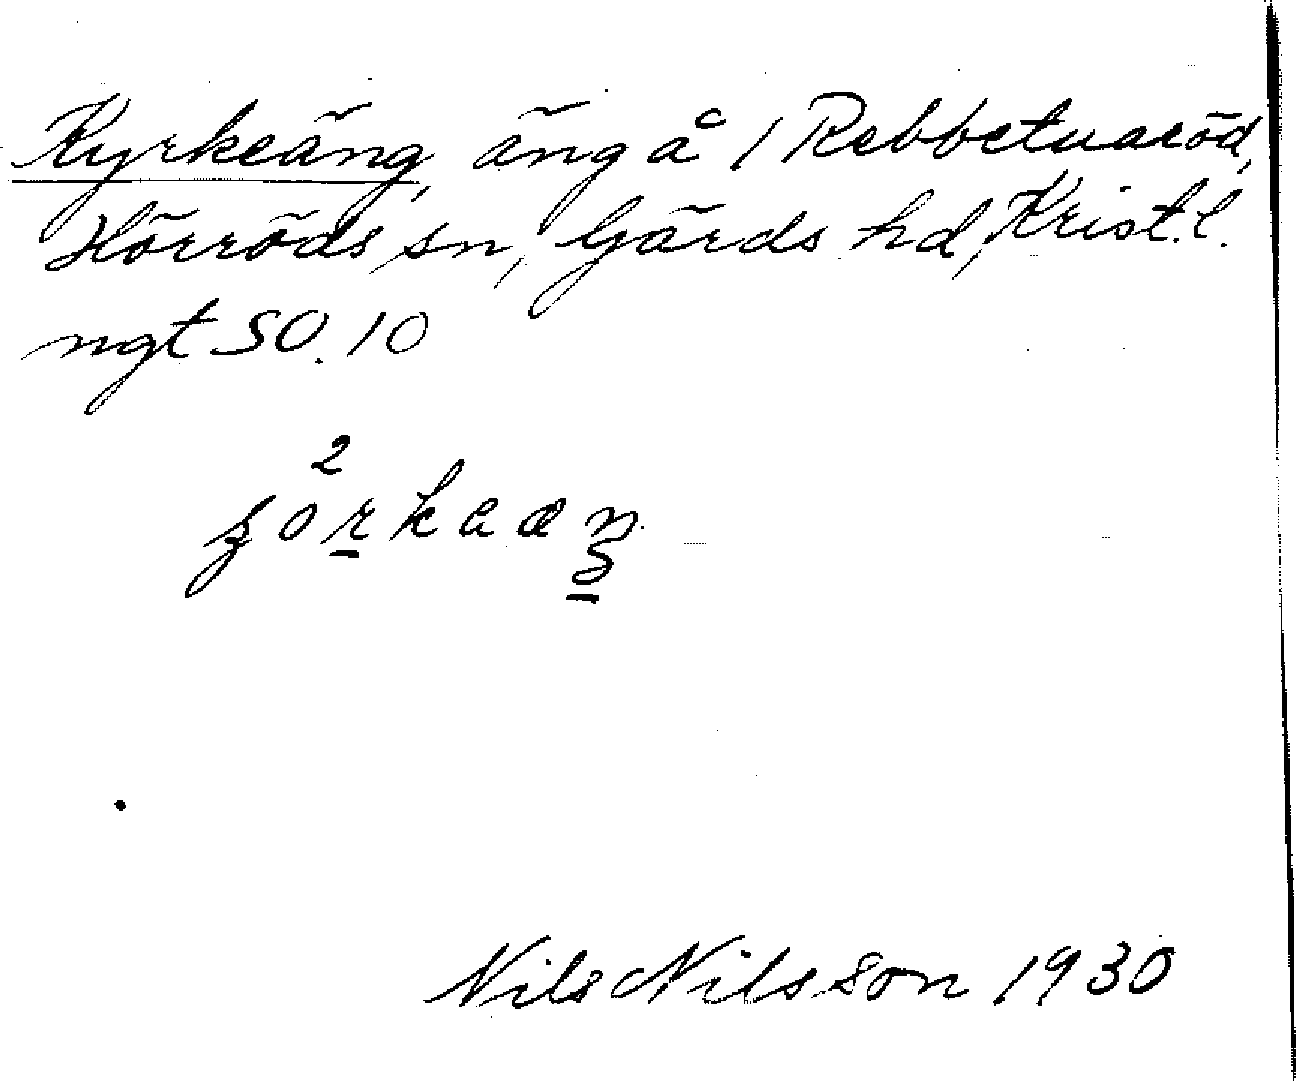 Kyrkeäng, äng å 1 Rebbetuaröd,
Hörröds sn, Gärds hd, Krist.l.
ngt SO. 10
2
Nils Nilsson 1930